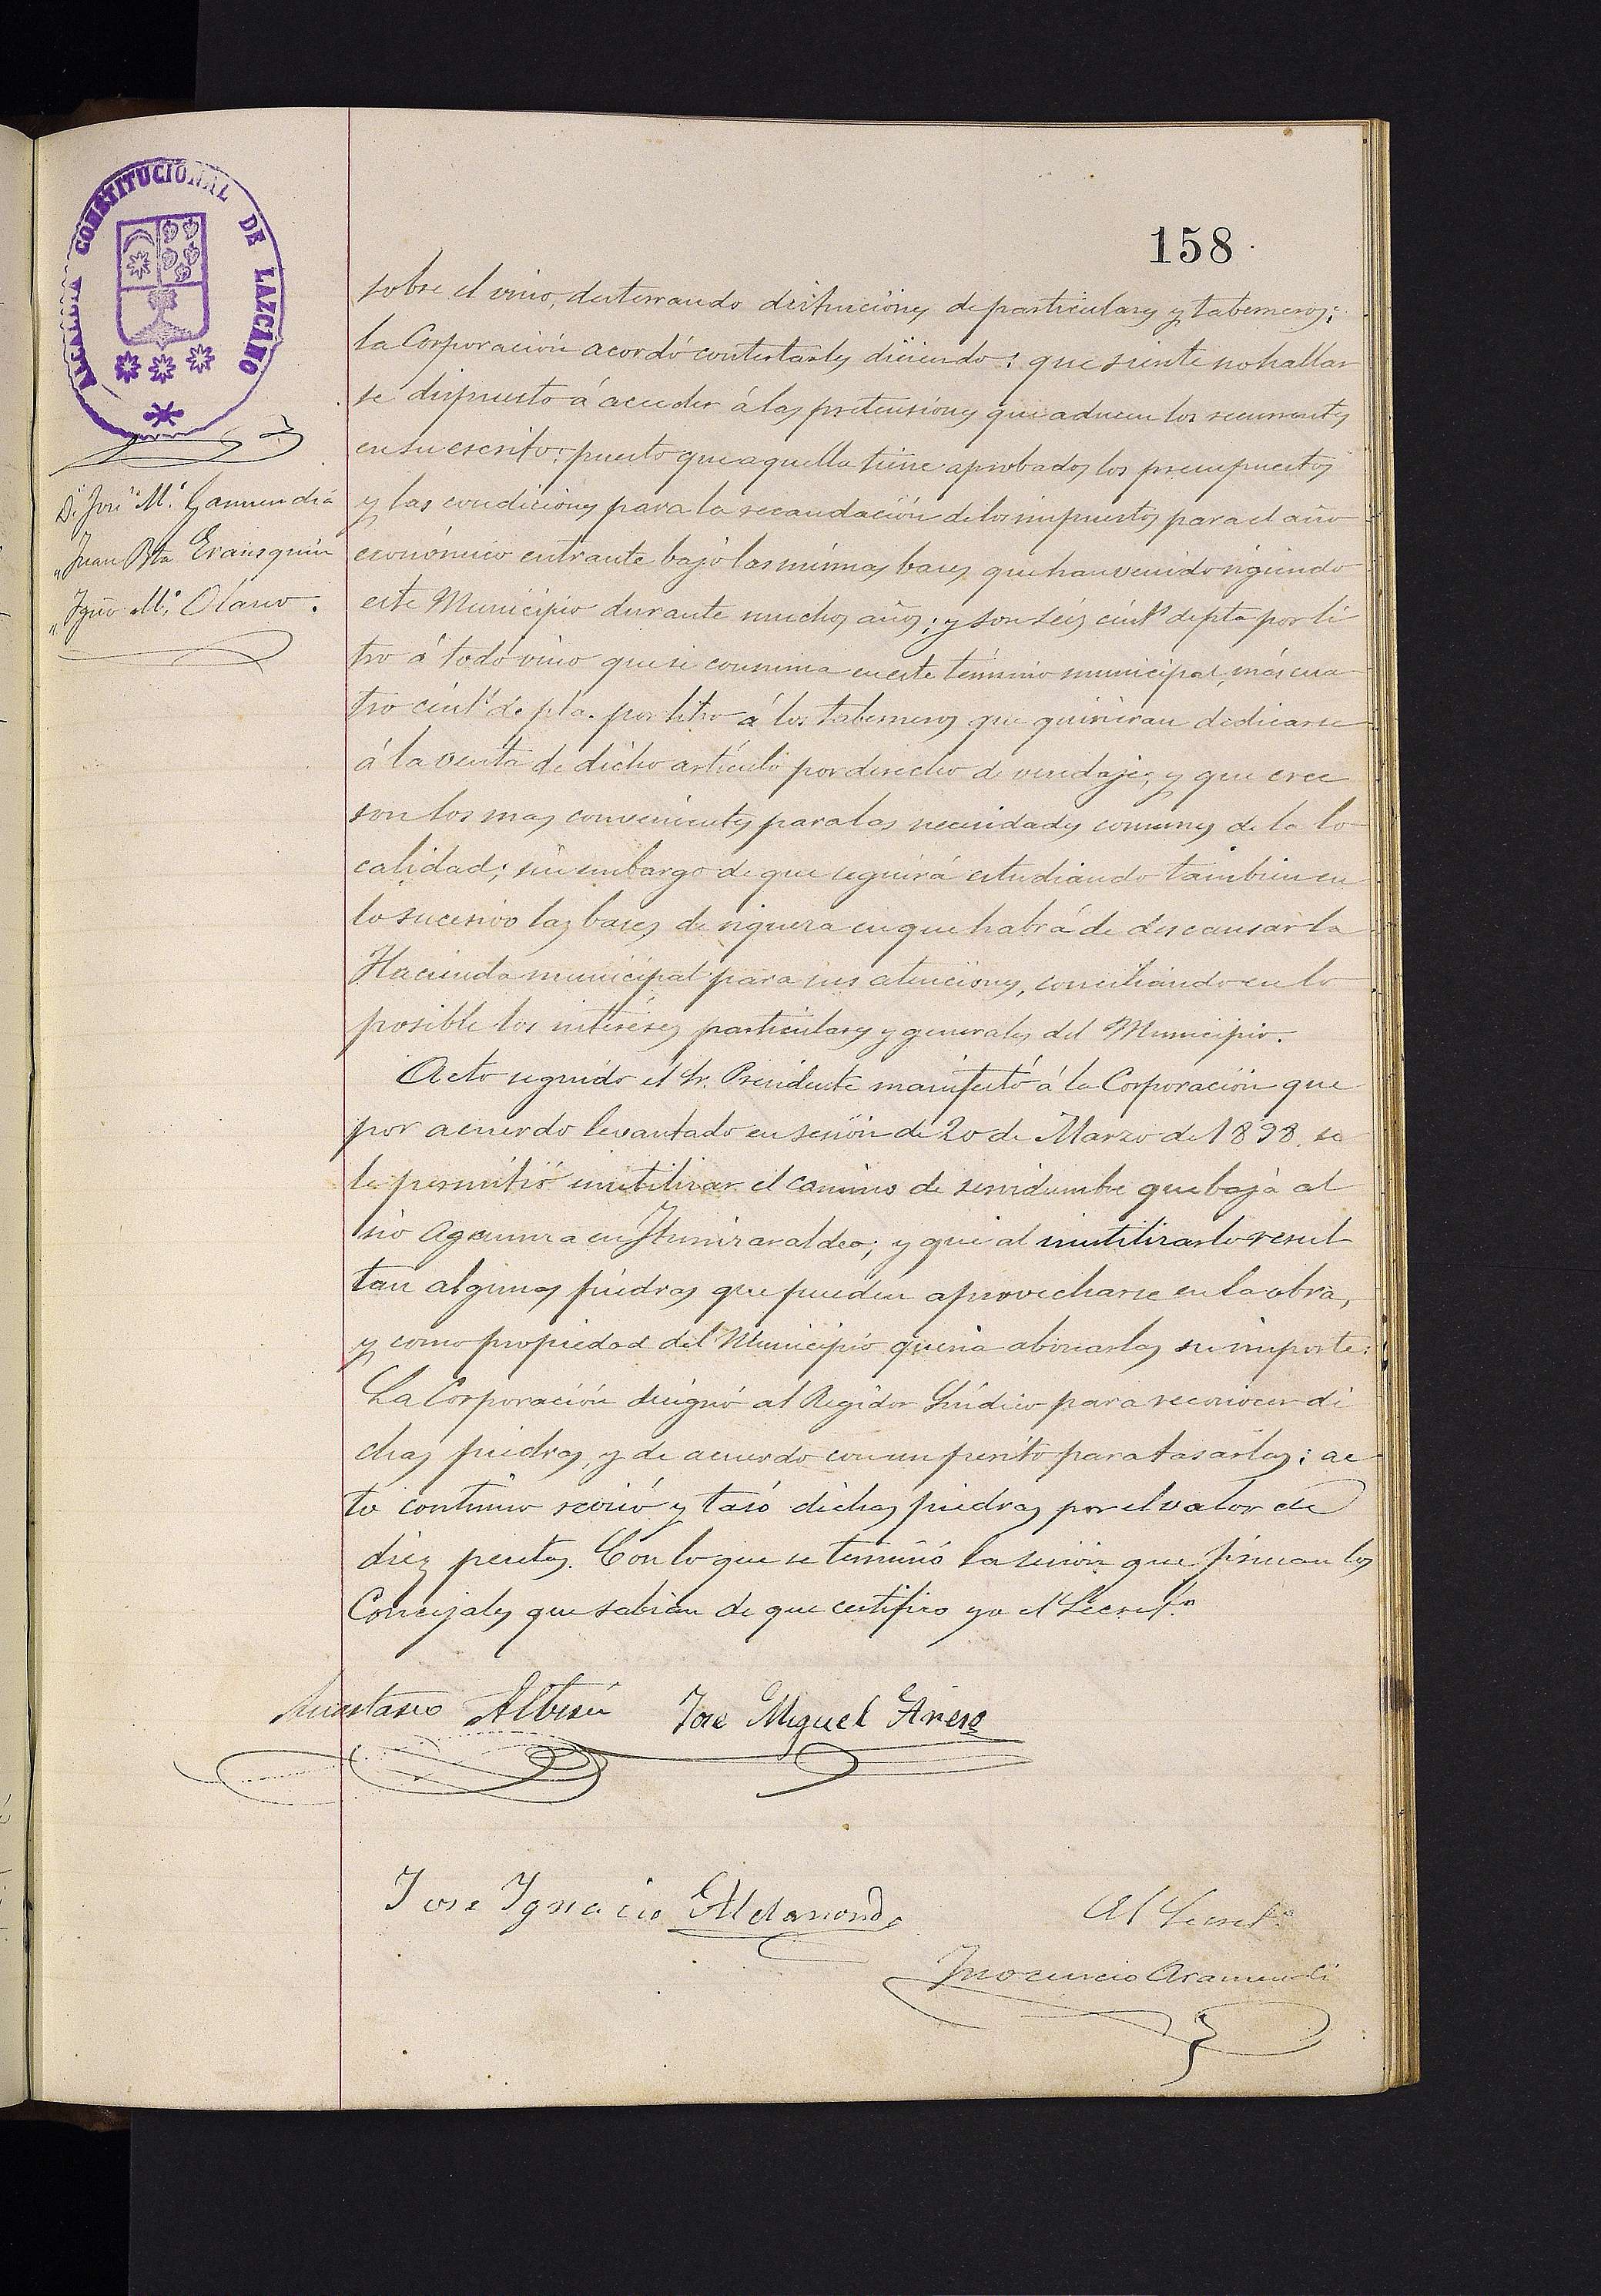 158
ALCALDIA CONSTITUCIONAL DE LAZCANO
D. José M.ª Garmendia
" Juan Bta Erausquin
" Ygno M.ª Olano.
sobre el vino, desterrando distinciones de particulares y taberneros;
la Corporación acordó contestarles diciendo: que siente no hallar
se dispuesto á acceder á las pretensiones que aducen los recurrentes
en su escrito; puesto que aquella tiene aprobados los presupuestos
y las condiciones para la recaudación de los impuestos para el año
económico entrante bajo las mismas bases que han venido rigiendo
este Municipio durante muchos años; y son seis cént.s de pta por li
tro á todo vino que se consuma en este término municipal, más cua
tro cént.s de pta. por litro á los taberneros que quisieran dedicarse
á la venta de dicho artículo por derecho de vendaje; y que cree
son los mas convenientes para las necesidades comunes de la lo
calidad; sin embargo de que seguirá estudiando tambien en
lo sucesivo las bases de riquera en que habrá de descansar la
Hacienda municipal para sus atenciones, conciliando en lo
posible los intereses particulares y generales del Municipio.
Acto seguido el Sr. Presidente manifestó á la Corporación que
por acuerdo levantado en sesión de 20 de Marzo de 1898 se
le permitió inutilizar el camino de servidumbre que baja al
rio Agaunza en ; y que al inutilizarlo resul
tan algunas piedras que pueden aprovecharse en la obra,
y como propiedad del Municipio queria abonarlas su importe:
La Corporación designó al Regidor Síndico para reconocer di
chas piedras, y de acuerdo con un perito para tasarlas: ac
to continuo reconió y tasó dichas piedras por el valor de
diez pesetas. Con lo que se terminó la sesión que firman los
Concejales que sabian de que certifico yo el Secret.º
Anastasio Albisu Jose Miguel Areso
Jose Ygnacio Aldasoro
El Secret.º
Ynocencio Aramendi